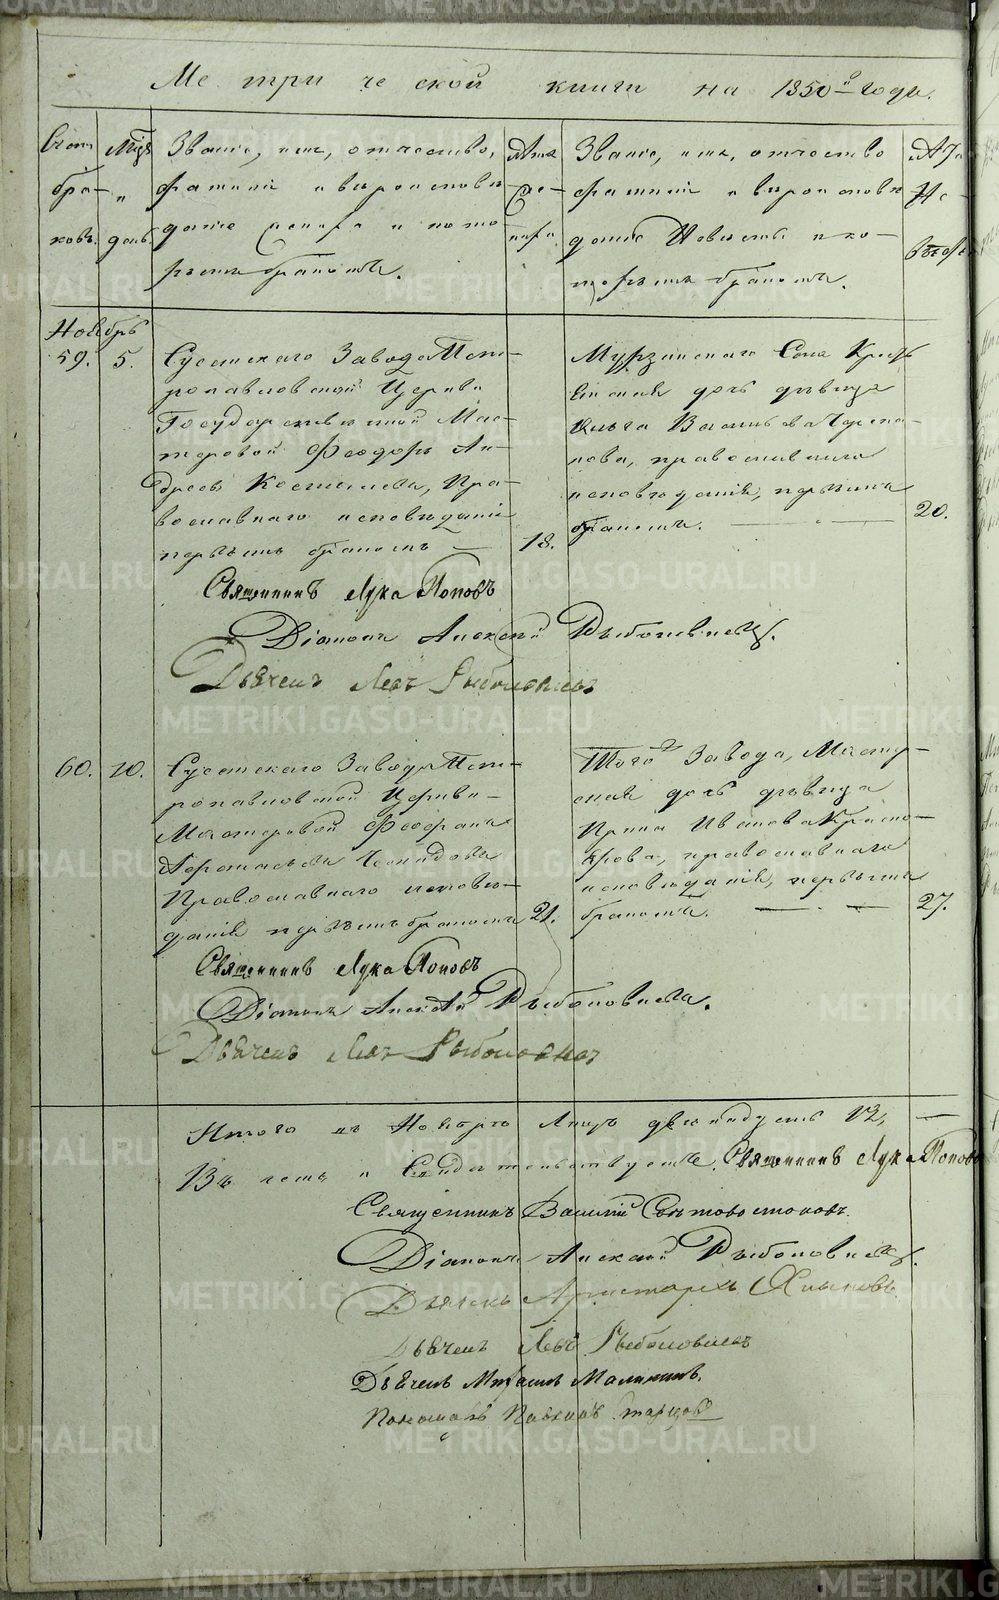 Метрической книги на 1850й годъ.
Счетъ браковъ.
Мцъ и день
Званіе, имя, отчество,
фамилія и вѣроисповѣ
даніе жениха и кото
рымъ бракомъ.
Лета
же-
ниха.
Званіе, имя, отчество
фамилія и вѣроисповѣ
даніе Невѣсты и ко-
торымъ бракомъ.
Лѣта
Не-
вѣсты
Ноябрь
59. 5.
Сусанскаго Завода Пет-
ропавловской Церкви
Государственной Мас-
теровой Феодоръ Ан-
дреевъ Костылевъ, Пра-
вославнаго исповѣданія
первымъ бракомъ —
18.
Мурзинскаго Села Кресть
янская дочь дѣвица
Ольга Васильева Черепа-
нова, православнаго
исповѣданія, первымъ
бракомъ. —
20.
Священникъ Лука Поповъ
Діаконъ Алексѣй Рыболовлевъ.
Дьячекъ Левъ Рыболовлевъ
60. 10.
Сусанскаго Завода Пет-
ропавловской Церкви
Мастеровой Феофанъ
Православнаго исповѣ-
данія первымъ бракомъ
21.
Того Завода, Мастер-
ская дочь дѣвица
Ирина Иванова
православнаго
исповѣданія, первымъ
бракомъ. —
27.
Священникъ Лука Поповъ
Діаконъ Алексѣй Рыболовлевъ.
Дьячекъ Левъ Рыболовлевъ
Итого въ Ноябрѣ двенадцать 12, —
В чемъ и Свидетельствуемъ. Священникъ Лука Поповъ
Священникъ Василій
Діаконъ Алексѣй Рыболовлевъ.
Дьячекъ Аристархъ Хлыновъ.
Дьячекъ Левъ Рыболовлевъ
Дьячекъ Малининъ.
Пономарь Старцовъ
METRIKI.GASO-URAL.RU